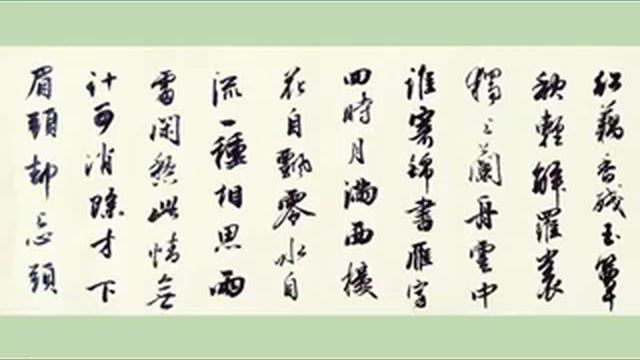 紅藕香殘玉簟
秋輕解羅裳
獨上蘭舟雲中
誰寄錦書雁字
回時月滿西樓
花自飄零水自
流一種相思兩
處閑愁此情無
計可消除才下
眉頭却上心頭